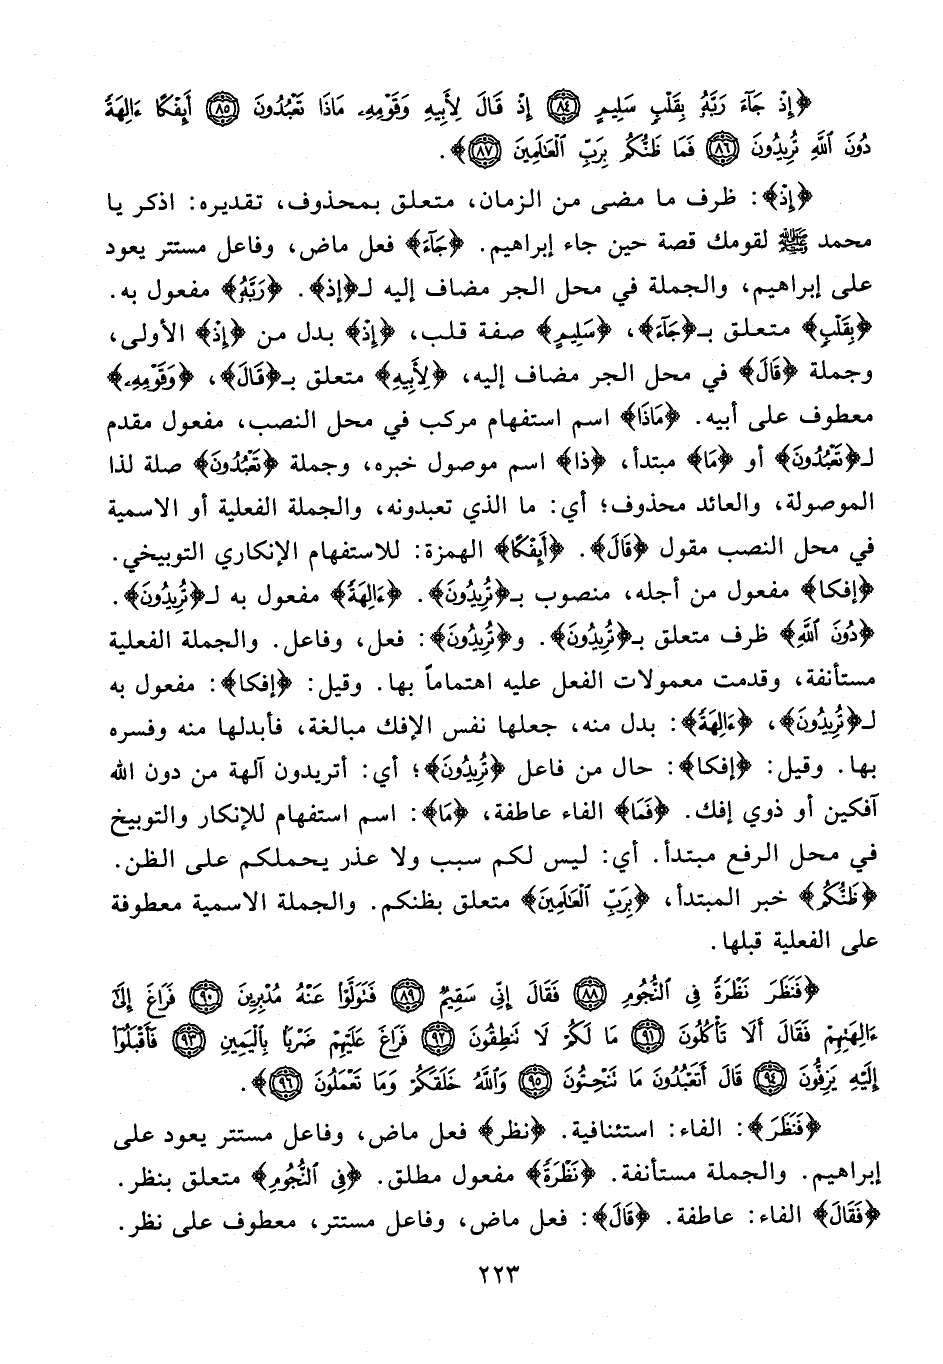 ﴿إِذْ جَآءَ رَبَّهُۥ بِقَلْبٍ سَلِيمٍ ۝٨٤ إِذْ قَالَ لِأَبِيهِ وَقَوْمِهِۦ مَاذَا تَعْبُدُونَ ۝٨٥ أَئِفْكًا ءَالِهَةً
دُونَ ٱللَّهِ تُرِيدُونَ ۝٨٦ فَمَا ظَنُّكُم بِرَبِّ ٱلْعَٰلَمِينَ ۝٨٧﴾.
﴿إِذْ﴾: ظرف ما مضى من الزمان، متعلق بمحذوف، تقديره: اذكر يا
محمد ﷺ لقومك قصة حين جاء إبراهيم. ﴿جَآءَ﴾ فعل ماض، وفاعل مستتر يعود
على إبراهيم، والجملة في محل الجر مضاف إليه لـ﴿إذ﴾. ﴿رَبَّهُۥ﴾ مفعول به.
﴿بِقَلْبٍ﴾ متعلق بـ﴿جَآءَ﴾، ﴿سَلِيمٍ﴾ صفة قلب، ﴿إِذْ﴾ بدل من ﴿إِذْ﴾ الأولى،
وجملة ﴿قَالَ﴾ في محل الجر مضاف إليه، ﴿لِأَبِيهِ﴾ متعلق بـ﴿قَالَ﴾، ﴿وَقَوْمِهِۦ﴾
معطوف على أبيه. ﴿مَاذَا﴾ اسم استفهام مركب في محل النصب، مفعول مقدم
لـ﴿تَعْبُدُونَ﴾ أو ﴿مَا﴾ مبتدأ، ﴿ذا﴾ اسم موصول خبره، وجملة ﴿تَعْبُدُونَ﴾ صلة لذا
الموصولة، والعائد محذوف؛ أي: ما الذي تعبدونه، والجملة الفعلية أو الاسمية
في محل النصب مقول ﴿قَالَ﴾. ﴿أَئِفْكًا﴾ الهمزة: للاستفهام الإنكاري التوبيخي.
﴿إفكا﴾ مفعول من أجله، منصوب بـ﴿تُرِيدُونَ﴾. ﴿ءَالِهَةً﴾ مفعول به لـ﴿تُرِيدُونَ﴾.
﴿دُونَ ٱللَّهِ﴾ ظرف متعلق بـ﴿تُرِيدُونَ﴾. و﴿تُرِيدُونَ﴾: فعل، وفاعل. والجملة الفعلية
مستأنفة، وقدمت معمولات الفعل عليه اهتماماً بها. وقيل: ﴿إفكا﴾: مفعول به
لـ﴿تُرِيدُونَ﴾، ﴿ءَالِهَةً﴾: بدل منه، جعلها نفس الإفك مبالغة، فأبدلها منه وفسره
بها. وقيل: ﴿إفكا﴾: حال من فاعل ﴿تُرِيدُونَ﴾؛ أي: أتريدون آلهة من دون الله
آفكين أو ذوي إفك. ﴿فَمَا﴾ الفاء عاطفة، ﴿مَا﴾: اسم استفهام للإنكار والتوبيخ
في محل الرفع مبتدأ. أي: ليس لكم سبب ولا عذر يحملكم على الظن.
﴿ظَنُّكُم﴾ خبر المبتدأ، ﴿بِرَبِّ ٱلْعَٰلَمِينَ﴾ متعلق بظنكم. والجملة الاسمية معطوفة
على الفعلية قبلها.
﴿فَنَظَرَ نَظْرَةً فِى ٱلنُّجُومِ ۝٨٨ فَقَالَ إِنِّى سَقِيمٌ ۝٨٩ فَتَوَلَّوْا۟ عَنْهُ مُدْبِرِينَ ۝٩٠ فَرَاغَ إِلَىٰٓ
ءَالِهَتِهِمْ فَقَالَ أَلَا تَأْكُلُونَ ۝٩١ مَا لَكُمْ لَا تَنطِقُونَ ۝٩٢ فَرَاغَ عَلَيْهِمْ ضَرْبًۢا بِٱلْيَمِينِ ۝٩٣ فَأَقْبَلُوٓا۟
إِلَيْهِ يَزِفُّونَ ۝٩٤ قَالَ أَتَعْبُدُونَ مَا تَنْحِتُونَ ۝٩٥ وَٱللَّهُ خَلَقَكُمْ وَمَا تَعْمَلُونَ ۝٩٦﴾.
﴿فَنَظَرَ﴾: الفاء: استئنافية. ﴿نظر﴾ فعل ماض، وفاعل مستتر يعود على
إبراهيم. والجملة مستأنفة. ﴿نَظْرَةً﴾ مفعول مطلق. ﴿فِى ٱلنُّجُومِ﴾ متعلق بنظر.
﴿فَقَالَ﴾ الفاء: عاطفة. ﴿قَالَ﴾: فعل ماض، وفاعل مستتر، معطوف على نظر.
٢٢٣